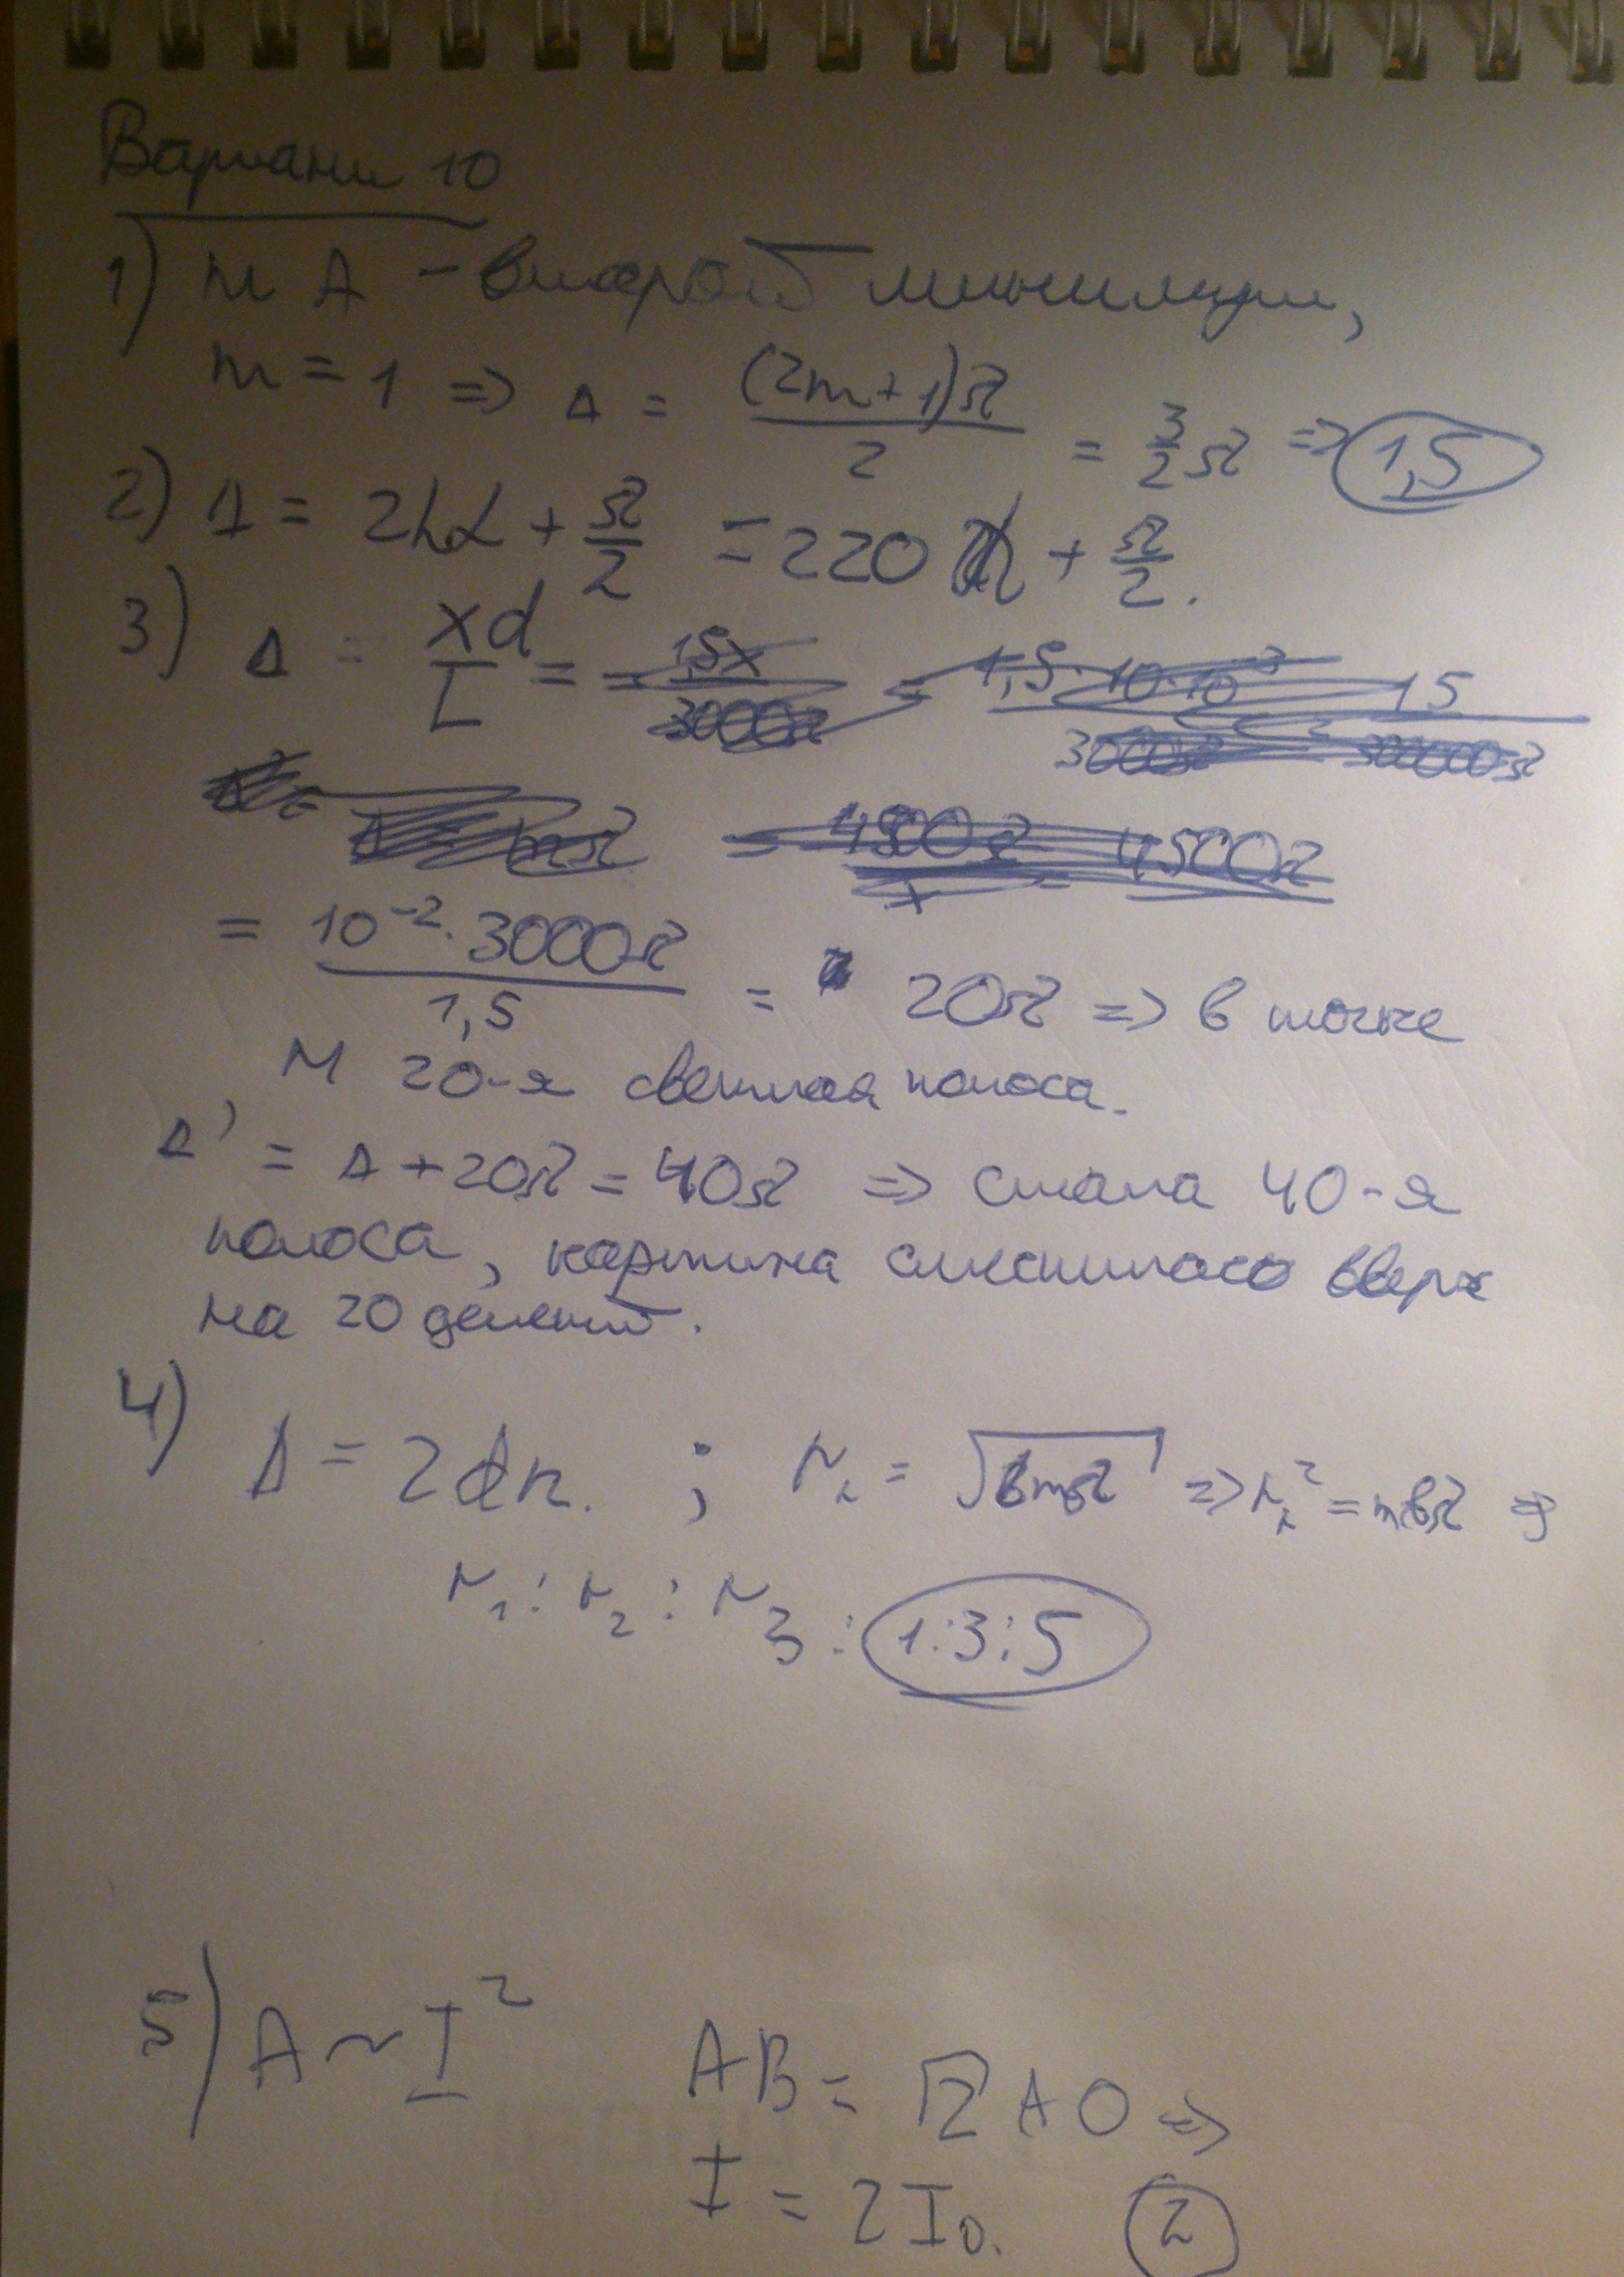 Вариант 10
1) т А - второй минимум,
m = 1 => Δ = (2m+1)λ / 2 = 3/2 λ => 1,5
2) Δ = 2hα + λ/2 = 220 λ + λ/2.
3) Δ = xd / L =
= 10^-2 · 3000λ / 1,5 = 20λ => в точке
М 20-я светлая полоса.
Δ' = Δ + 20λ = 40λ => стала 40-я
полоса, картина сместилась вверх
на 20 делений.
4) Δ = 2dn. ; r = √ => r² = =>
r₁ : r₂ : r₃ : 1:3:5
5) A ~ I² AB = √2 AO =>
I = 2I₀. 2